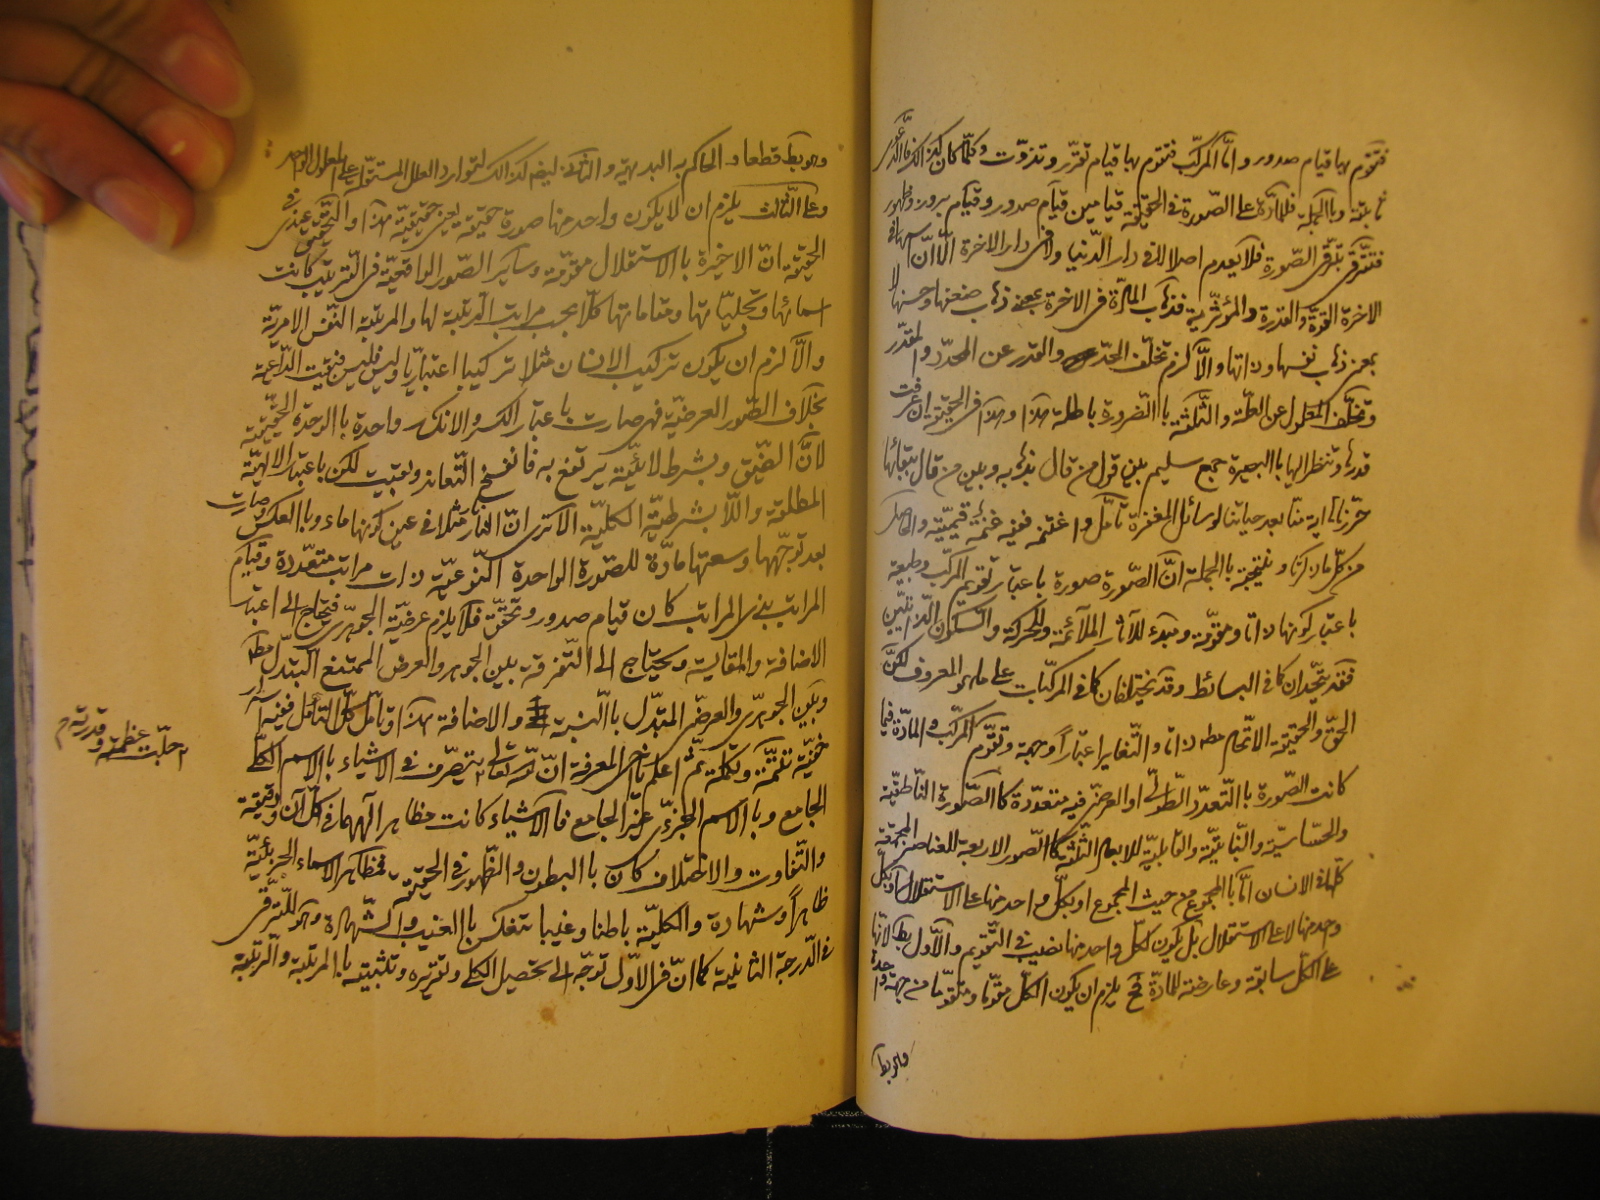 فتقوم بها قيام صدور و امّا المركّب فتقوم بها قيام تقرّر و تذوّت و كلّما كان كذلك
و بالجملة فللمادة على الصّورة فى الحقيقة قيامين قيام صدور و قيام بروز و ظهور
فتترقى بترقى الصّورة فلا يعدم اصلا لا فى دار الدّنيا و لا فى دار الاخرة الّا انّ
الاخرة القوة و القدرة و المؤثرية فذهاب المادّة فى الاخرة بمعنى ذهاب ضعفها و خسّتها لا
بمعنى ذهاب نفسها و ذاتها و الّا لزم تخلّف و القدر عن المحدّد و المقدّر
و تخلّف المعلول عن العلّة و الثّلثة باالضّرورة باطلة هذا و هذا فى الحقيقة ان عرفت
قدرها و تنظر اليها باالبصيرة جمع سليم بين قول من قال و بين من قال ببقائها
تأمّل و اغتنم فهنه غنمة و الحاصل
من كلّ ما ذكرنا و نتيجته باالجملة انّ الصّورة صورة باعتبار تقويم المركّب و طبيعة
باعتبار كونها ذاتا و مقومة و مبدء للآثار الملائمة و للحركة و السّكون الذّاتيّين
فقد يتّحدان كما فى البسائط و قد يختلفان كما فى المركّبات على ما هو المعروف لكنّ
الحقّ و الحقيقة الاتّحاد مطه ذاتا و التّغاير اعتبارا و جهة و تقوّم المركّب و المادّة فيما
كانت الصّورة باالتّعدد الطّولى او العرضى فيه متعدّدة كاالصّورة النّاطقيّة
و الحسّاسيّة و النّباتيّة و القابليّة للابعاد الثّلثة كاالصّور الاربعة للعناصر المجتمعة
كلّها فى الانسان امّا باالمجموع من حيث المجموع او بكلّ واحد منها على الاستقلال او بكلّ
واحد منها لا على الاستقلال بل يكون لكلّ واحد منها نصيب فى التّقويم و الاوّل بط لانّها
على الكلّ سابقة و عارضة للمادّة فح يلزم ان يكون الكلّ مقوّما و متقوّما من جهة واحدة
و هو بط
و هو بط قطعا و الحاكم به البديهيّة و الثّانى ايضا كذلك لتوارد العلل المستقلّة على المعلول الواحد
و على الثّالث يلزم ان لا يكون واحد منها صورة حقيقة يعنى حقيقيّة هذا و التّحقيق عندى فى
الحقيقة انّ الاخيرة باالاستقلال مقوّمة و ساير الصّور الواقعيّة فى التّرتيب كانت
اسمائها و تجليّاتها و مقاماتها كلّا بحسب مراتب التّرتيبة لها و المرتبة النّفس الامريّة
و الّا لزم ان يكون تركيب الانسان مثلا تركيبا اعتباريّا و ليس فليس فبقيت الدّاعية
بخلاف الصّور العرضيّة فهى صارت باعتبار الكسر و الانكسار واحدة باالوحدة الحقيقيّة
لانّ الضّيق و بشرط لائيّة يرتفع به فانفسخ التّعاند و بقيت لكن باعتبار الالهيّة
المطلقة و اللّا بشرطيّة الكليّة الا ترى انّ النار مثلا فى عين كونها ماء و باالعكس صارت
بعد توجّهها و سعتها مادّة للصّورة الواحدة النّوعيّة ذات مراتب متعدّدة و قيام
المراتب بذى المراتب كان قيام صدور و تحقّق فلا يلزم عرضيّة الجوهرى فيحتاج الى اعتبار
الاضافة و المقايسة و يحتاج الى التّفرقة بين الجوهر و العرض الممتنع التّبدّل مطه
و بين الجوهرى و العرضى المتبدّل باالنسبة و الاضافة هذا و تأمّل كلّ التّأمّل ففيه اسرار
خفيّة تتمّة و تكملة ثمّ اعلم يا اخى المعرفة انّ الله تعالى يتصرّف فى الاشياء باالاسم الكلّى
جلّت عظمته و قدرته م
الجامع و باالاسم الجزئى غير الجامع فاالاشياء كانت مظاهرا لهما فى كلّ آن و دقيقة
و التّفاوت و الاختلاف كان باالبطون و الظّهور فى الحقيقة فمظاهر الاسماء الجزئيّة
ظاهرا و شهادة و الكليّة باطنا و غيبا تنعكس باالغيب و الشّهادة و هو للتّرقى
فى الدّرجة الثانية كما انّ فى الاوّل توجّه الى تحصيل الكلى و تقريره و تثبيته باالمرتبة و الرّتبة